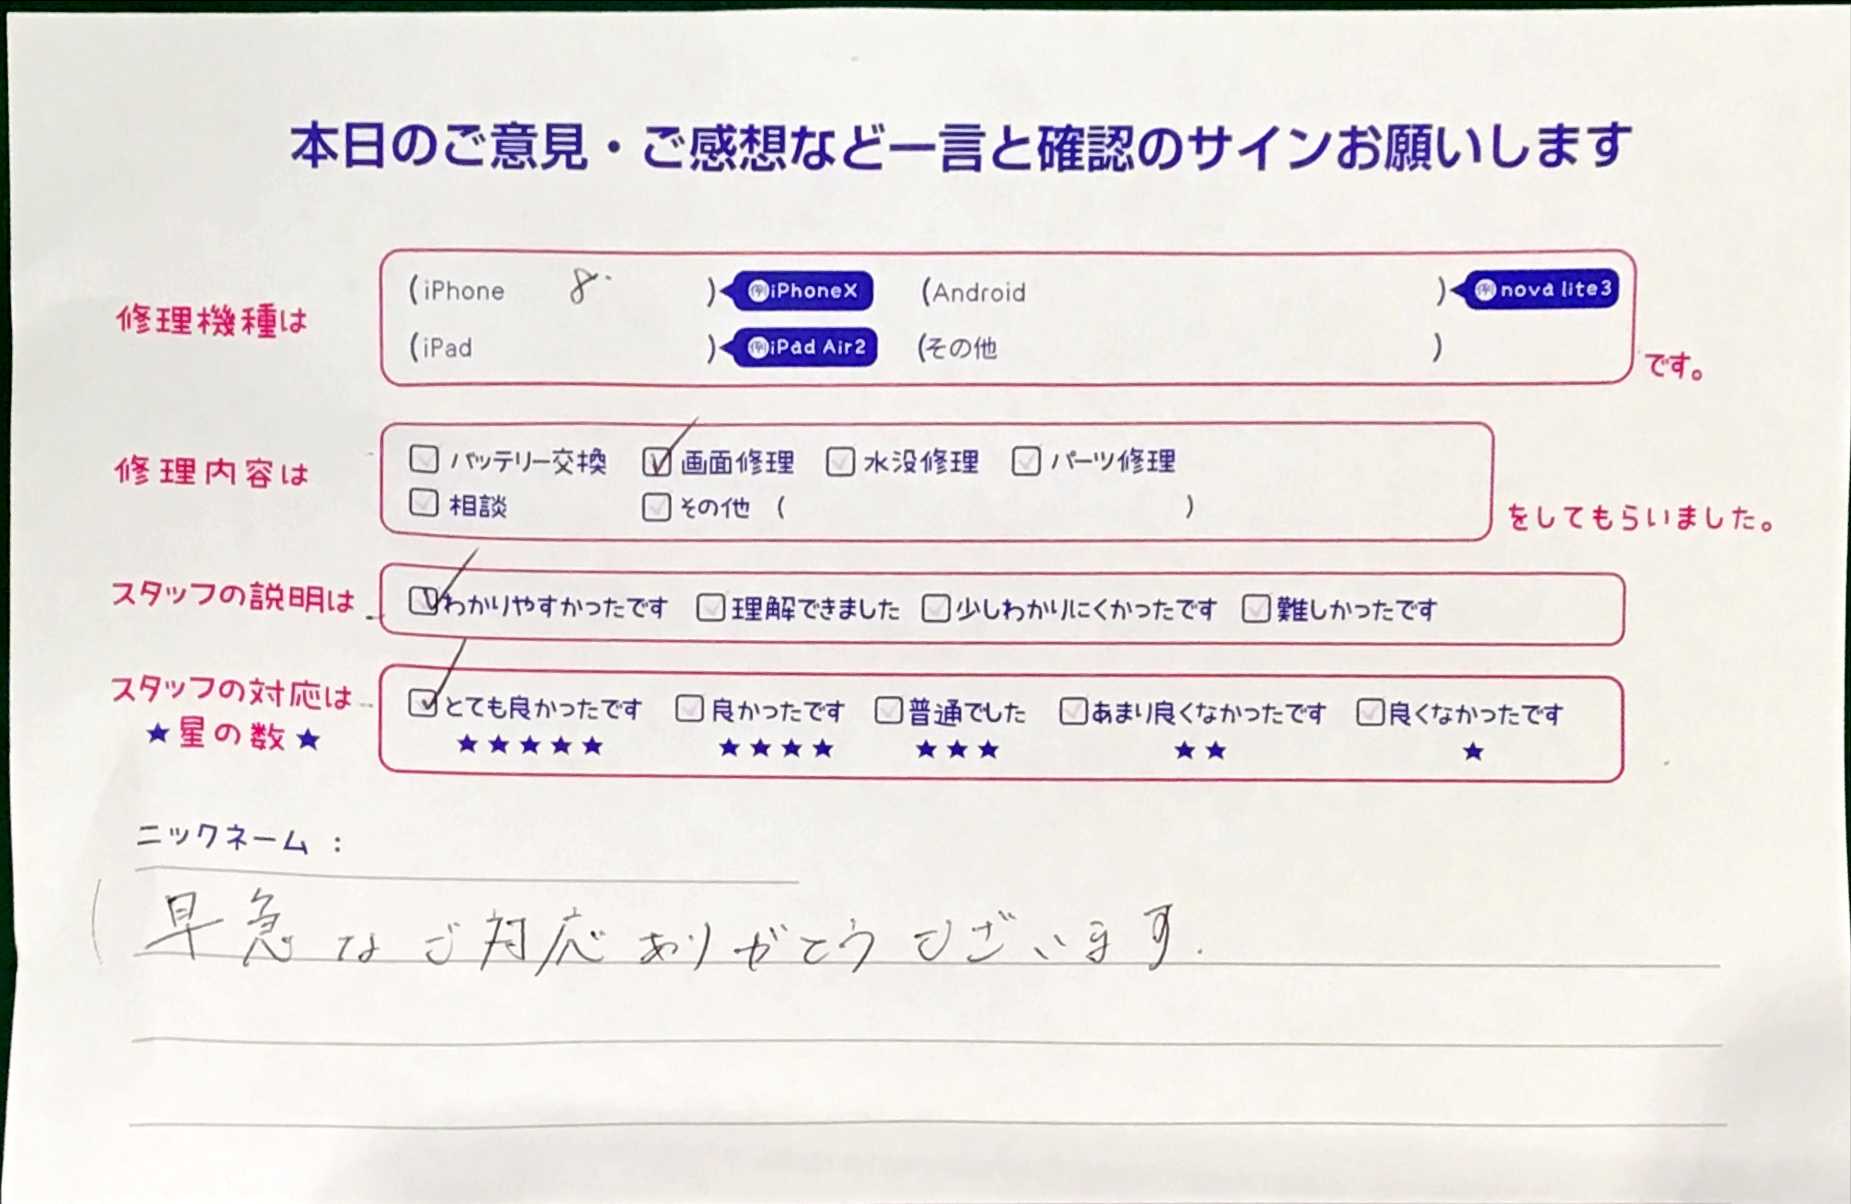 本日のご意見・ご感想など一言と確認のサインお願いします
修理機種は
(iPhone 8. ) 例iPhoneX (Android ) 例nova lite3
(iPad ) 例iPad Air2 (その他 )
です。
修理内容は
バッテリー交換 画面修理 水没修理 パーツ修理
相談 その他 ( )
をしてもらいました。
スタッフの説明は
わかりやすかったです 理解できました 少しわかりにくかったです 難しかったです
スタッフの対応は
★星の数★
とても良かったです 良かったです 普通でした あまり良くなかったです 良くなかったです
★★★★★ ★★★★ ★★★ ★★ ★
ニックネーム :
早急なご対応ありがとうございます.